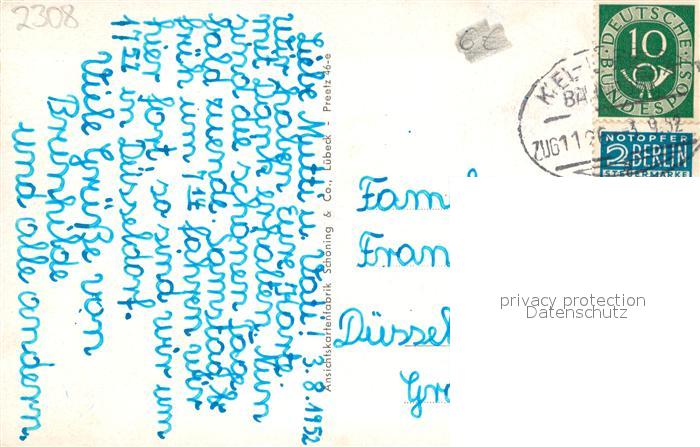 2308
6€
Liebe Mutti u. Vati! 3.8.1952
wir haben Eure Karte
mit Dank erhalten. Nun
sind die schönen Tage
bald zuende. Samstag
früh um 7 fahren wir
hier fort so sind wir um
17 in Düsseldorf.
Viele Grüße von
Brünhilde
und alle andern.
Ansichtskartenfabrik Schöning & Co., Lübeck - Preetz 46-e
DEUTSCHE BUNDESPOST
10
KIEL-
BA
ZUG 11
.9.52
NOTOPFER
2 BERLIN
STEUERMARKE
Fam
Fran
Düssel
Gra
privacy protection
Datenschutz